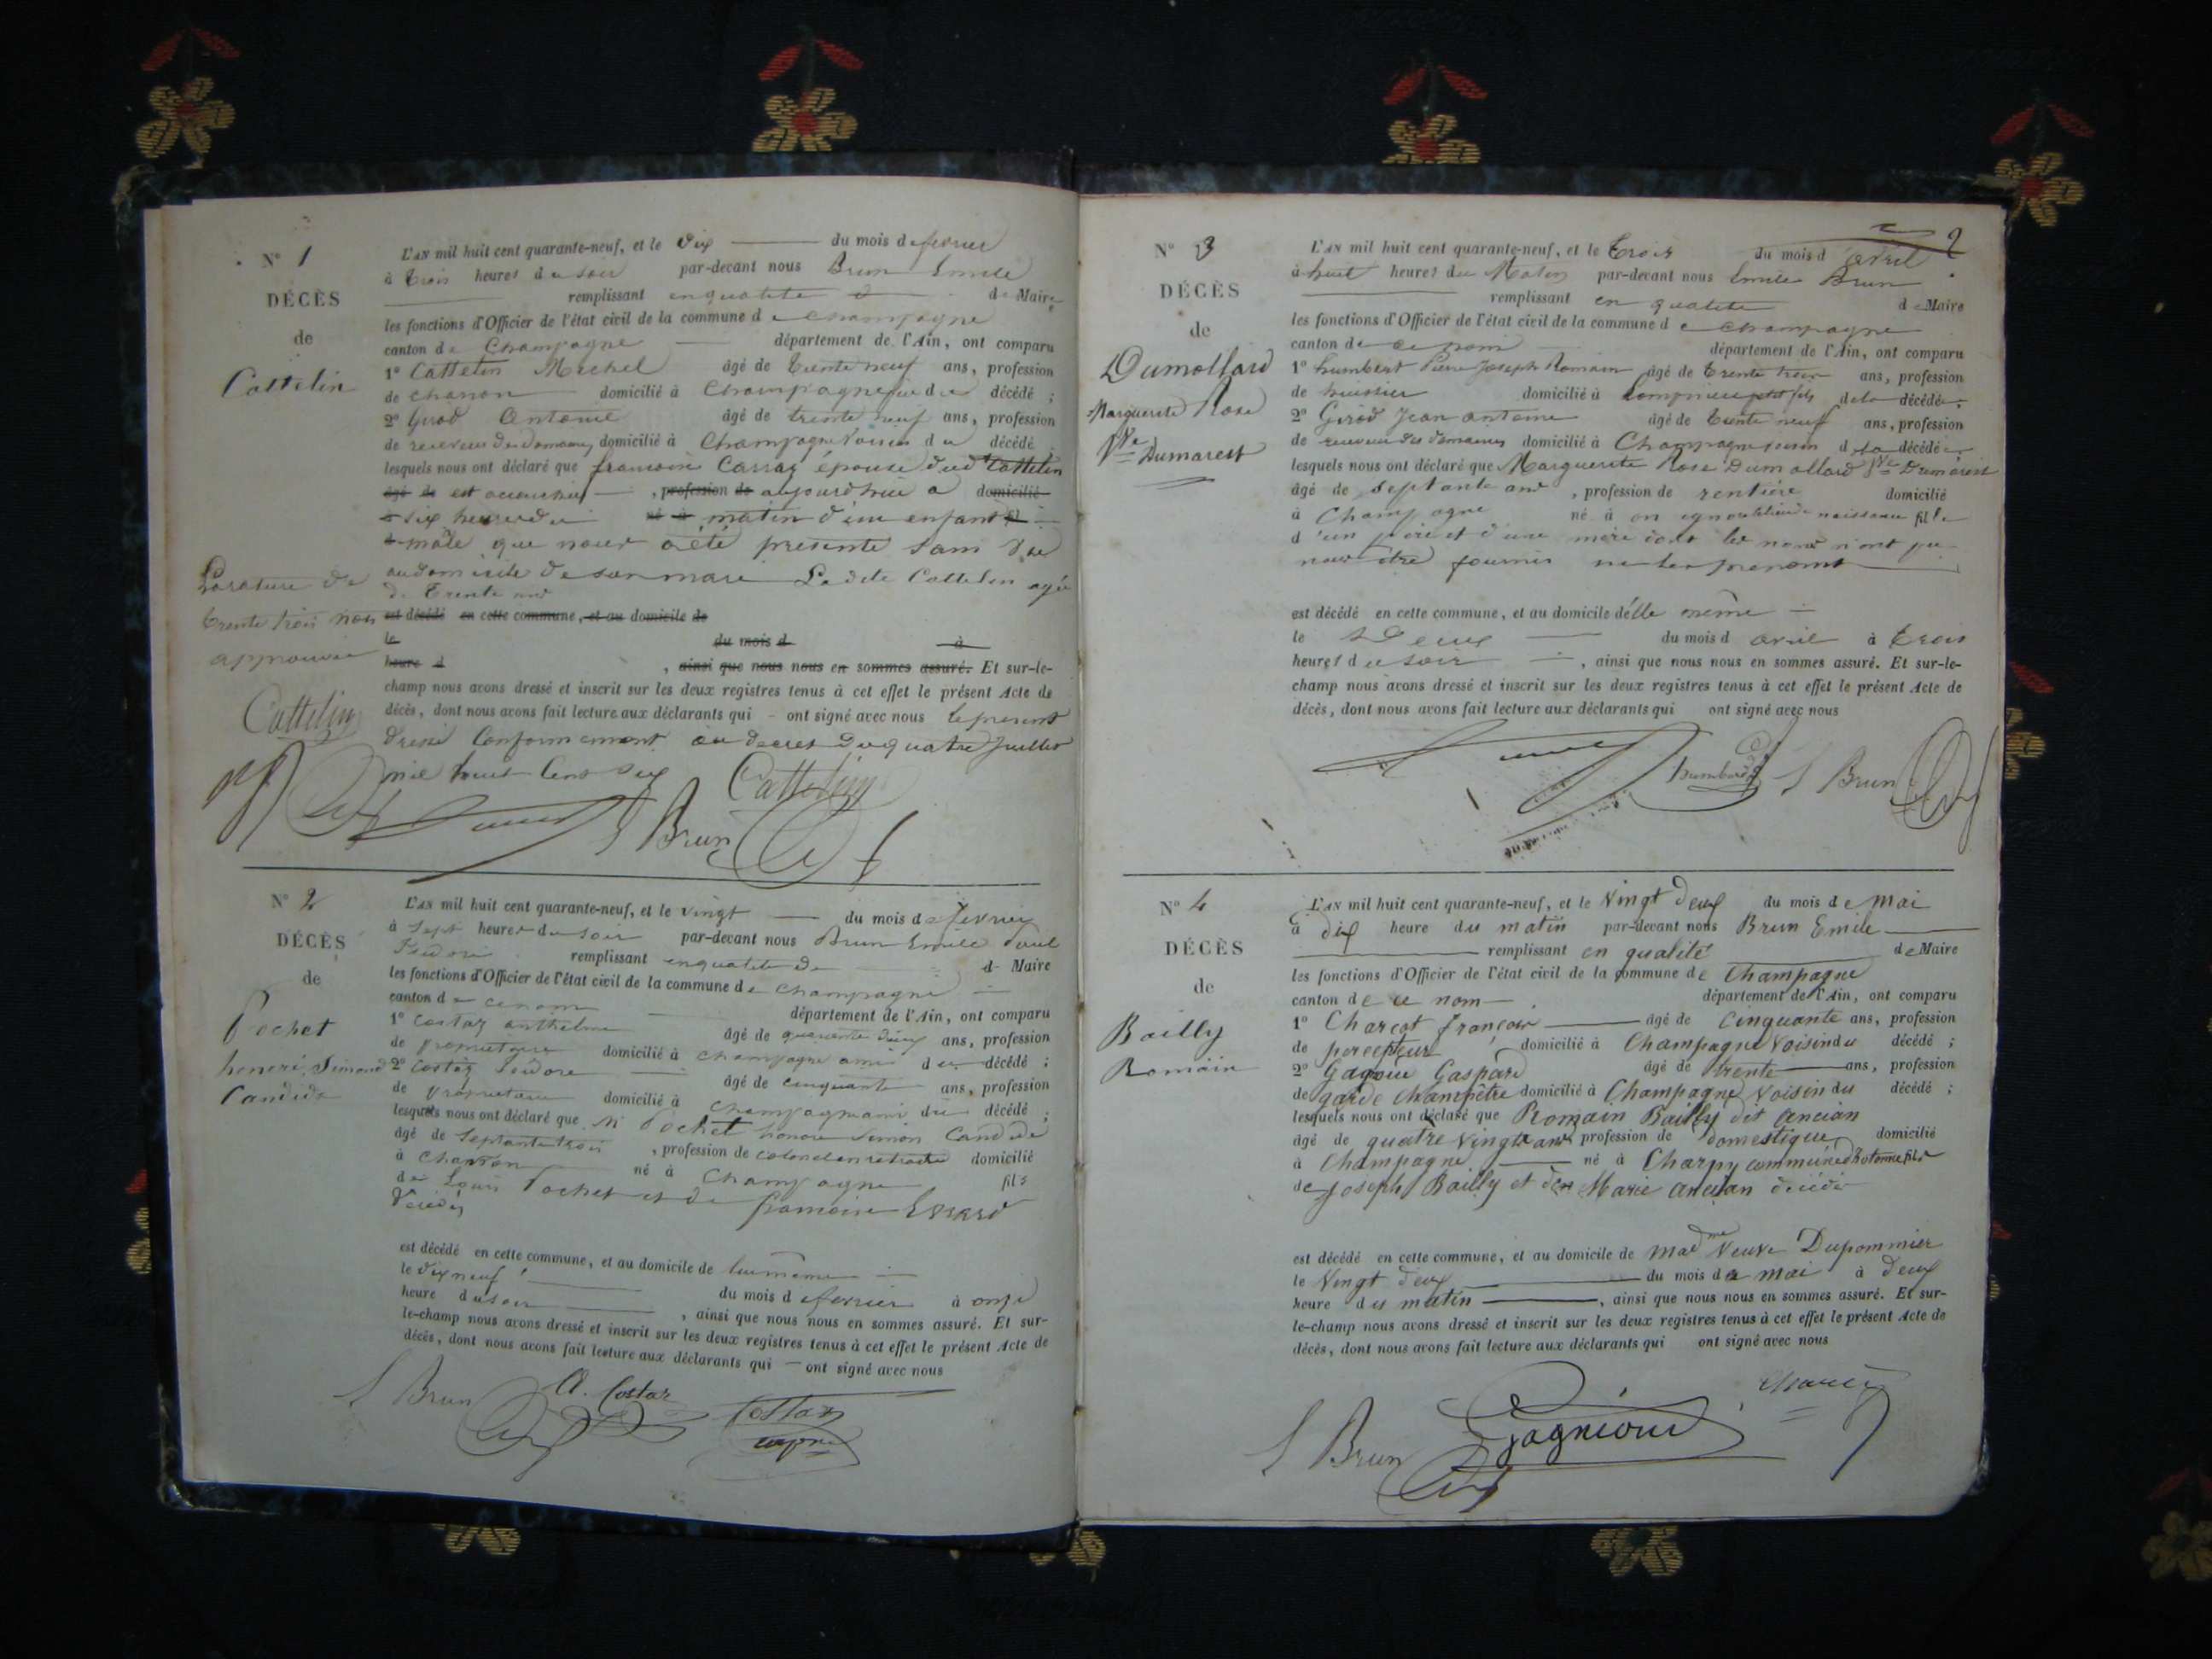 N° 1
DÉCÈS
de
Cattelin
L'AN mil huit cent quarante-neuf, et le dix du mois de fevrier
à trois heures du soir par-devant nous Brun Emile
remplissant en qualité d de Maire
les fonctions d'Officier de l'état civil de la commune de champagne
canton de Champagne département de l'Ain, ont comparu
1° Cattelin Michel âgé de trente neuf ans, profession
de charron domicilié à Champagne du décédé ;
2° Girod Antoine âgé de trente neuf ans, profession
de receveur des Domaines domicilié à Champagne voisin du décédé
lesquels nous ont déclaré que épouse dud Cattelin
âgé de est accouchée , profession de aujourdhui a domicilié
à six heures du né à matin d'un enfant fil
mâle que nous a été présenté sans vie
au domicile de son mari Ladite Cattelin agée
de trente ans
est décédé en cette commune, et au domicile de
le du mois d à
heure d , ainsi que nous nous en sommes assuré. Et sur-le-
champ nous avons dressé et inscrit sur les deux registres tenus à cet effet le présent Acte de
décès, dont nous avons fait lecture aux déclarants qui ont signé avec nous le present
dressé Conformement au decret du quatre Juillet
mil huit Cent six
Larature de
trente trois mots
approuvée
Cattelin
Cattelin
Brun
N° 2
DÉCÈS
de
Pochet
honoré Simond
Candide
L'AN mil huit cent quarante-neuf, et le vingt du mois de fevrier
à sept heures du soir par-devant nous Brun Emile Paul
remplissant en qualité de d Maire
les fonctions d'Officier de l'état civil de la commune de champagne
canton de ce nom département de l'Ain, ont comparu
1° Costaz anthelme âgé de quarante deux ans, profession
de propriétaire domicilié à champagne ami du décédé ;
2° Costaz Isidore âgé de cinquante ans, profession
de propriétaire domicilié à Champagne ami du décédé ;
lesquels nous ont déclaré que Mr Pochet honoré Simon Candide
âgé de septante trois , profession de colonel en retraite domicilié
à Charron né à Champagne fils
de Louis Pochet et de
décédés
est décédé en cette commune, et au domicile de lui même
le dix neuf du mois de fevrier à onze
heure du soir , ainsi que nous nous en sommes assuré. Et sur-
le-champ nous avons dressé et inscrit sur les deux registres tenus à cet effet le présent Acte de
décès, dont nous avons fait lecture aux déclarants qui ont signé avec nous
Brun A. Costaz Costaz
N° 3
DÉCÈS
de
Dumollard
Marguerite Rose
Vve Dumarest
2
L'AN mil huit cent quarante-neuf, et le trois du mois d'avril
à huit heures du Matin par-devant nous Emile Brun
remplissant en qualité de Maire
les fonctions d'Officier de l'état civil de la commune de champagne
canton de ce nom département de l'Ain, ont comparu
1° humbert Pierre Joseph Romain âgé de trente trois ans, profession
de huissier domicilié à petit fils de la décédée ;
2° Girod Jean antoine âgé de trente neuf ans, profession
de receveur des domaines domicilié à Champagne voisin d la décédée
lesquels nous ont déclaré que Marguerite Rose Dumollard Vve Dumarest
âgé de septante ans , profession de rentière domicilié
à Champagne né à on ignore le lieu de naissance fille
d'un père et d'une mère dont les noms n'ont pu
nous être fournis ni les prénoms
est décédé en cette commune, et au domicile d'elle même
le Deux du mois d avril à trois
heures du soir , ainsi que nous nous en sommes assuré. Et sur-le-
champ nous avons dressé et inscrit sur les deux registres tenus à cet effet le présent Acte de
décès, dont nous avons fait lecture aux déclarants qui ont signé avec nous
humbert Brun
N° 4
DÉCÈS
de
Bailly
Romain
L'AN mil huit cent quarante-neuf, et le vingt deux du mois de Mai
à dix heure du matin par-devant nous Brun Emile
remplissant en qualité de Maire
les fonctions d'Officier de l'état civil de la commune de Champagne
canton de ce nom département de l'Ain, ont comparu
1° Charcot françois âgé de Cinquante ans, profession
de percepteur domicilié à Champagne Voisin du décédé ;
2° Gaspard âgé de trente ans, profession
de garde champêtre domicilié à Champagne Voisin du décédé ;
lesquels nous ont déclaré que Romain Bailly dit ancian
âgé de quatre vingt ans profession de domestique domicilié
à Champagne né à Charpy commune d'hotonne fils
de Joseph Bailly et de Marie ancian décédé
est décédé en cette commune, et au domicile de madme Veuve Dupommier
le Vingt deux du mois de mai à deux
heure du matin , ainsi que nous nous en sommes assuré. Et sur-
le-champ nous avons dressé et inscrit sur les deux registres tenus à cet effet le présent Acte de
décès, dont nous avons fait lecture aux déclarants qui ont signé avec nous
Brun